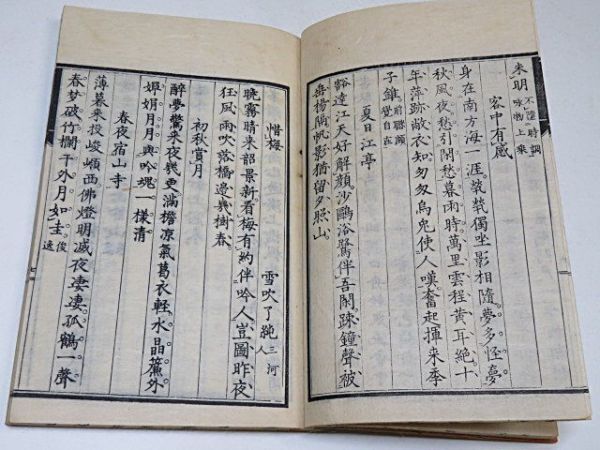 来明 不墮時調 咏物上乘
客中有感
身在南方海一涯。煢煢獨坐影相隨。夢多怪夢
秋風夜。愁引閑愁暮雨時。萬里雲程黄耳絶。十
年萍跡敝衣知。匆匆烏兎使人嘆。奮起揮來季
子錐。前聯頗覺自在
夏日江亭
豁達江天好解顔。沙鷗浴鷺伴吾閑。疎鐘聲被
垂楊隔。帆影猶留夕照山。
惜梅 雪吹了純 三河人
曉霧晴来韶景新。看梅有約伴吟人。豈圖昨夜
狂風雨。吹落橋邊幾樹春
初秋賞月
醉夢驚来夜幾更。滿檐凉氣葛衣軽。水晶簾外
娟娟月。月與吟魂一樣清
春夜宿山寺
薄暮来投峻嶺西。佛燈明滅夜凄凄。孤鶴一聲
春梦破。竹欄干外月如圭。俊逸